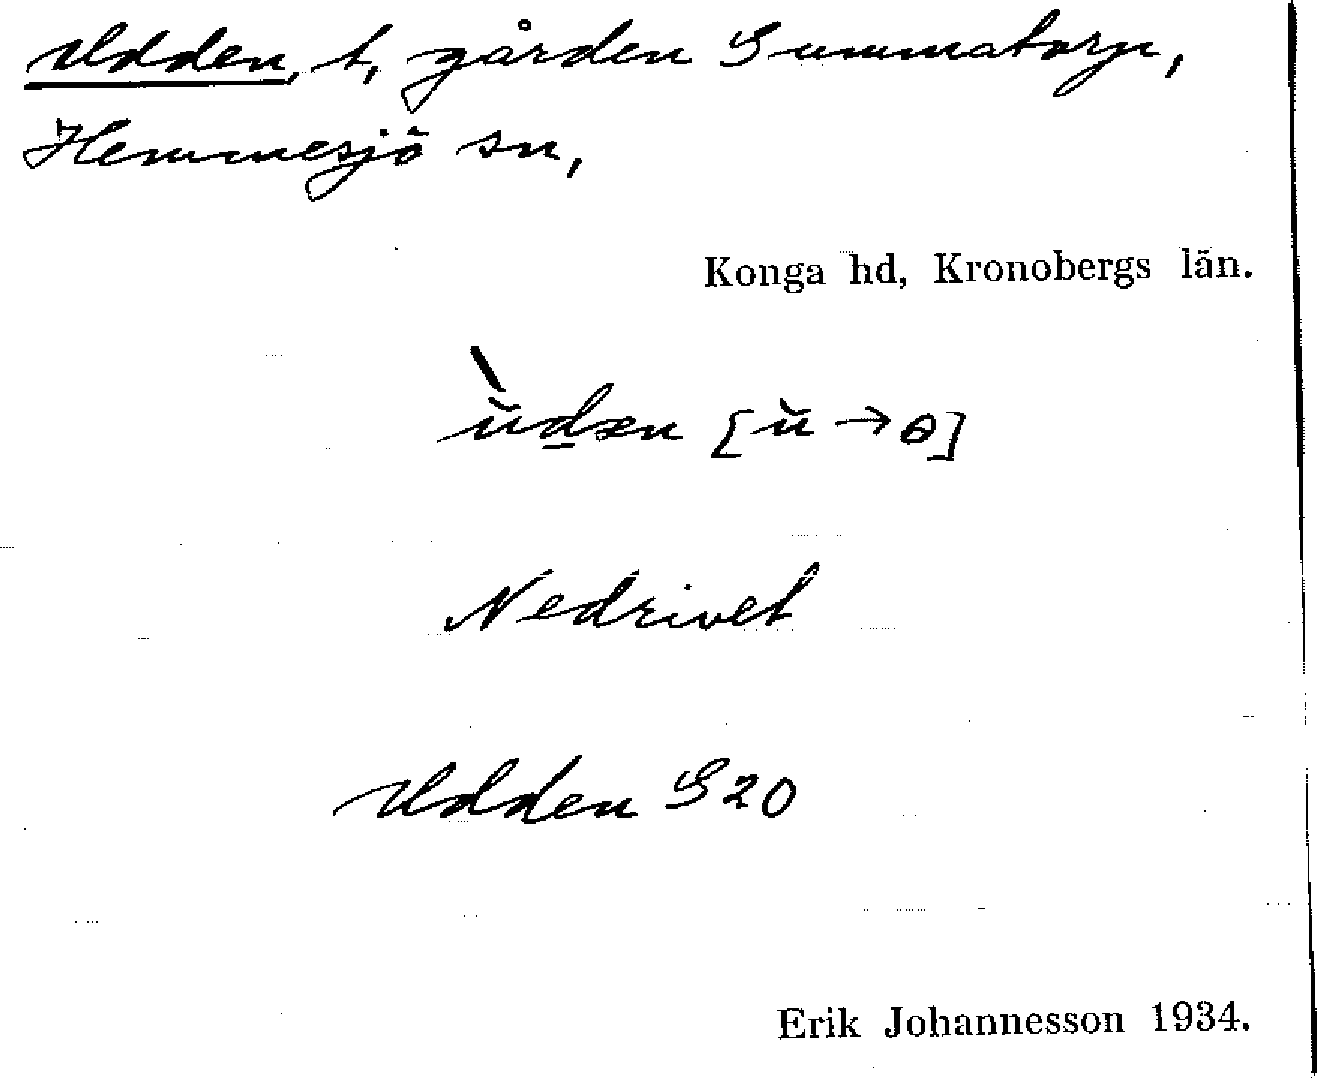 Udden, t, gården Summatorp,
Hemmesjö sn,
Konga hd, Kronobergs län.
ùdən [ŭ→ɵ]
Nedrivet
Udden S20
Erik Johannesson 1934.